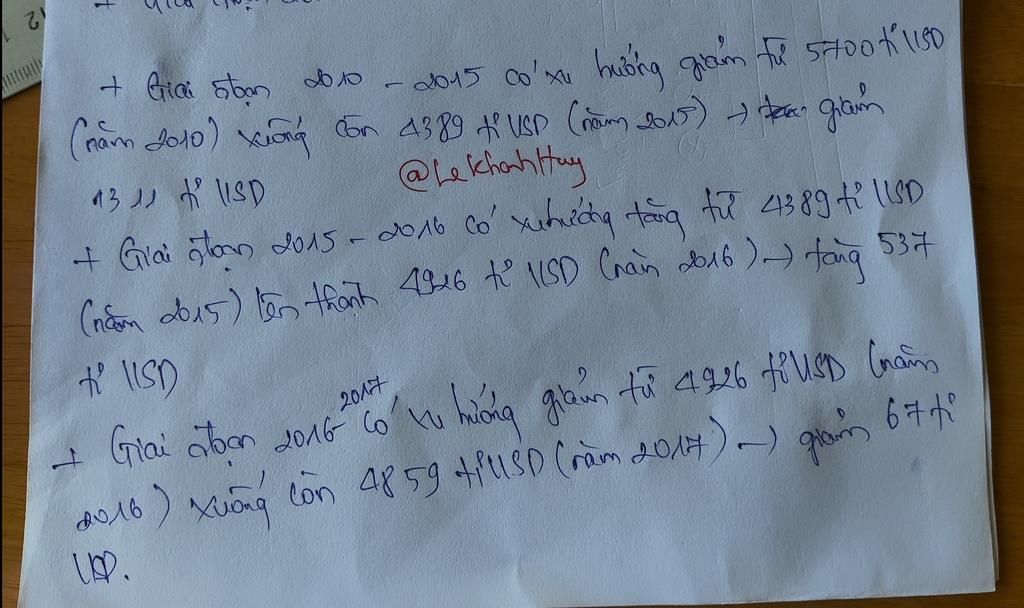 + Giai đoạn 2010 - 2015 có xu hướng giảm từ 5700 tỉ USD
(năm 2010) xuống còn 4389 tỉ USD (năm 2015) → giảm
1311 tỉ USD
@LeKhanhHuy
+ Giai đoạn 2015 - 2016 có xu hướng tăng từ 4389 tỉ USD
(năm 2015) lên thành 4926 tỉ USD (năm 2016) → tăng 537
tỉ USD
+ Giai đoạn 2016-2017 có xu hướng giảm từ 4926 tỉ USD (năm
2016) xuống còn 4859 tỉ USD (năm 2017) → giảm 67 tỉ
USD.